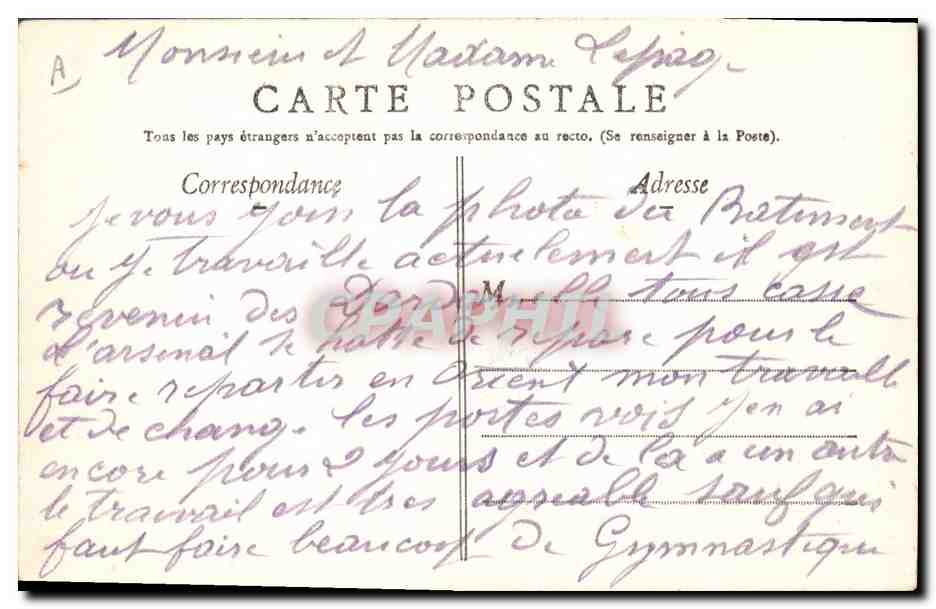 A
Monsieur et Madame Lepage
CARTE POSTALE
Tous les pays étrangers n'acceptent pas la correspondance au recto. (Se renseigner à la Poste).
Correspondance
Adresse
je vous join la photo du Batiment
ou je travaille actuelement il est
M
revenir des Dardanelle tous casse
CPAPHIL
l'arsenal se hatte de repare pour le
faire repartir en Orient mon travaille
et de change les portes vois j'en ai
encore pour 2 jours et de la a un autre
le travail est tres agreable sauf qui
faut faire beaucoup de Gymnastique